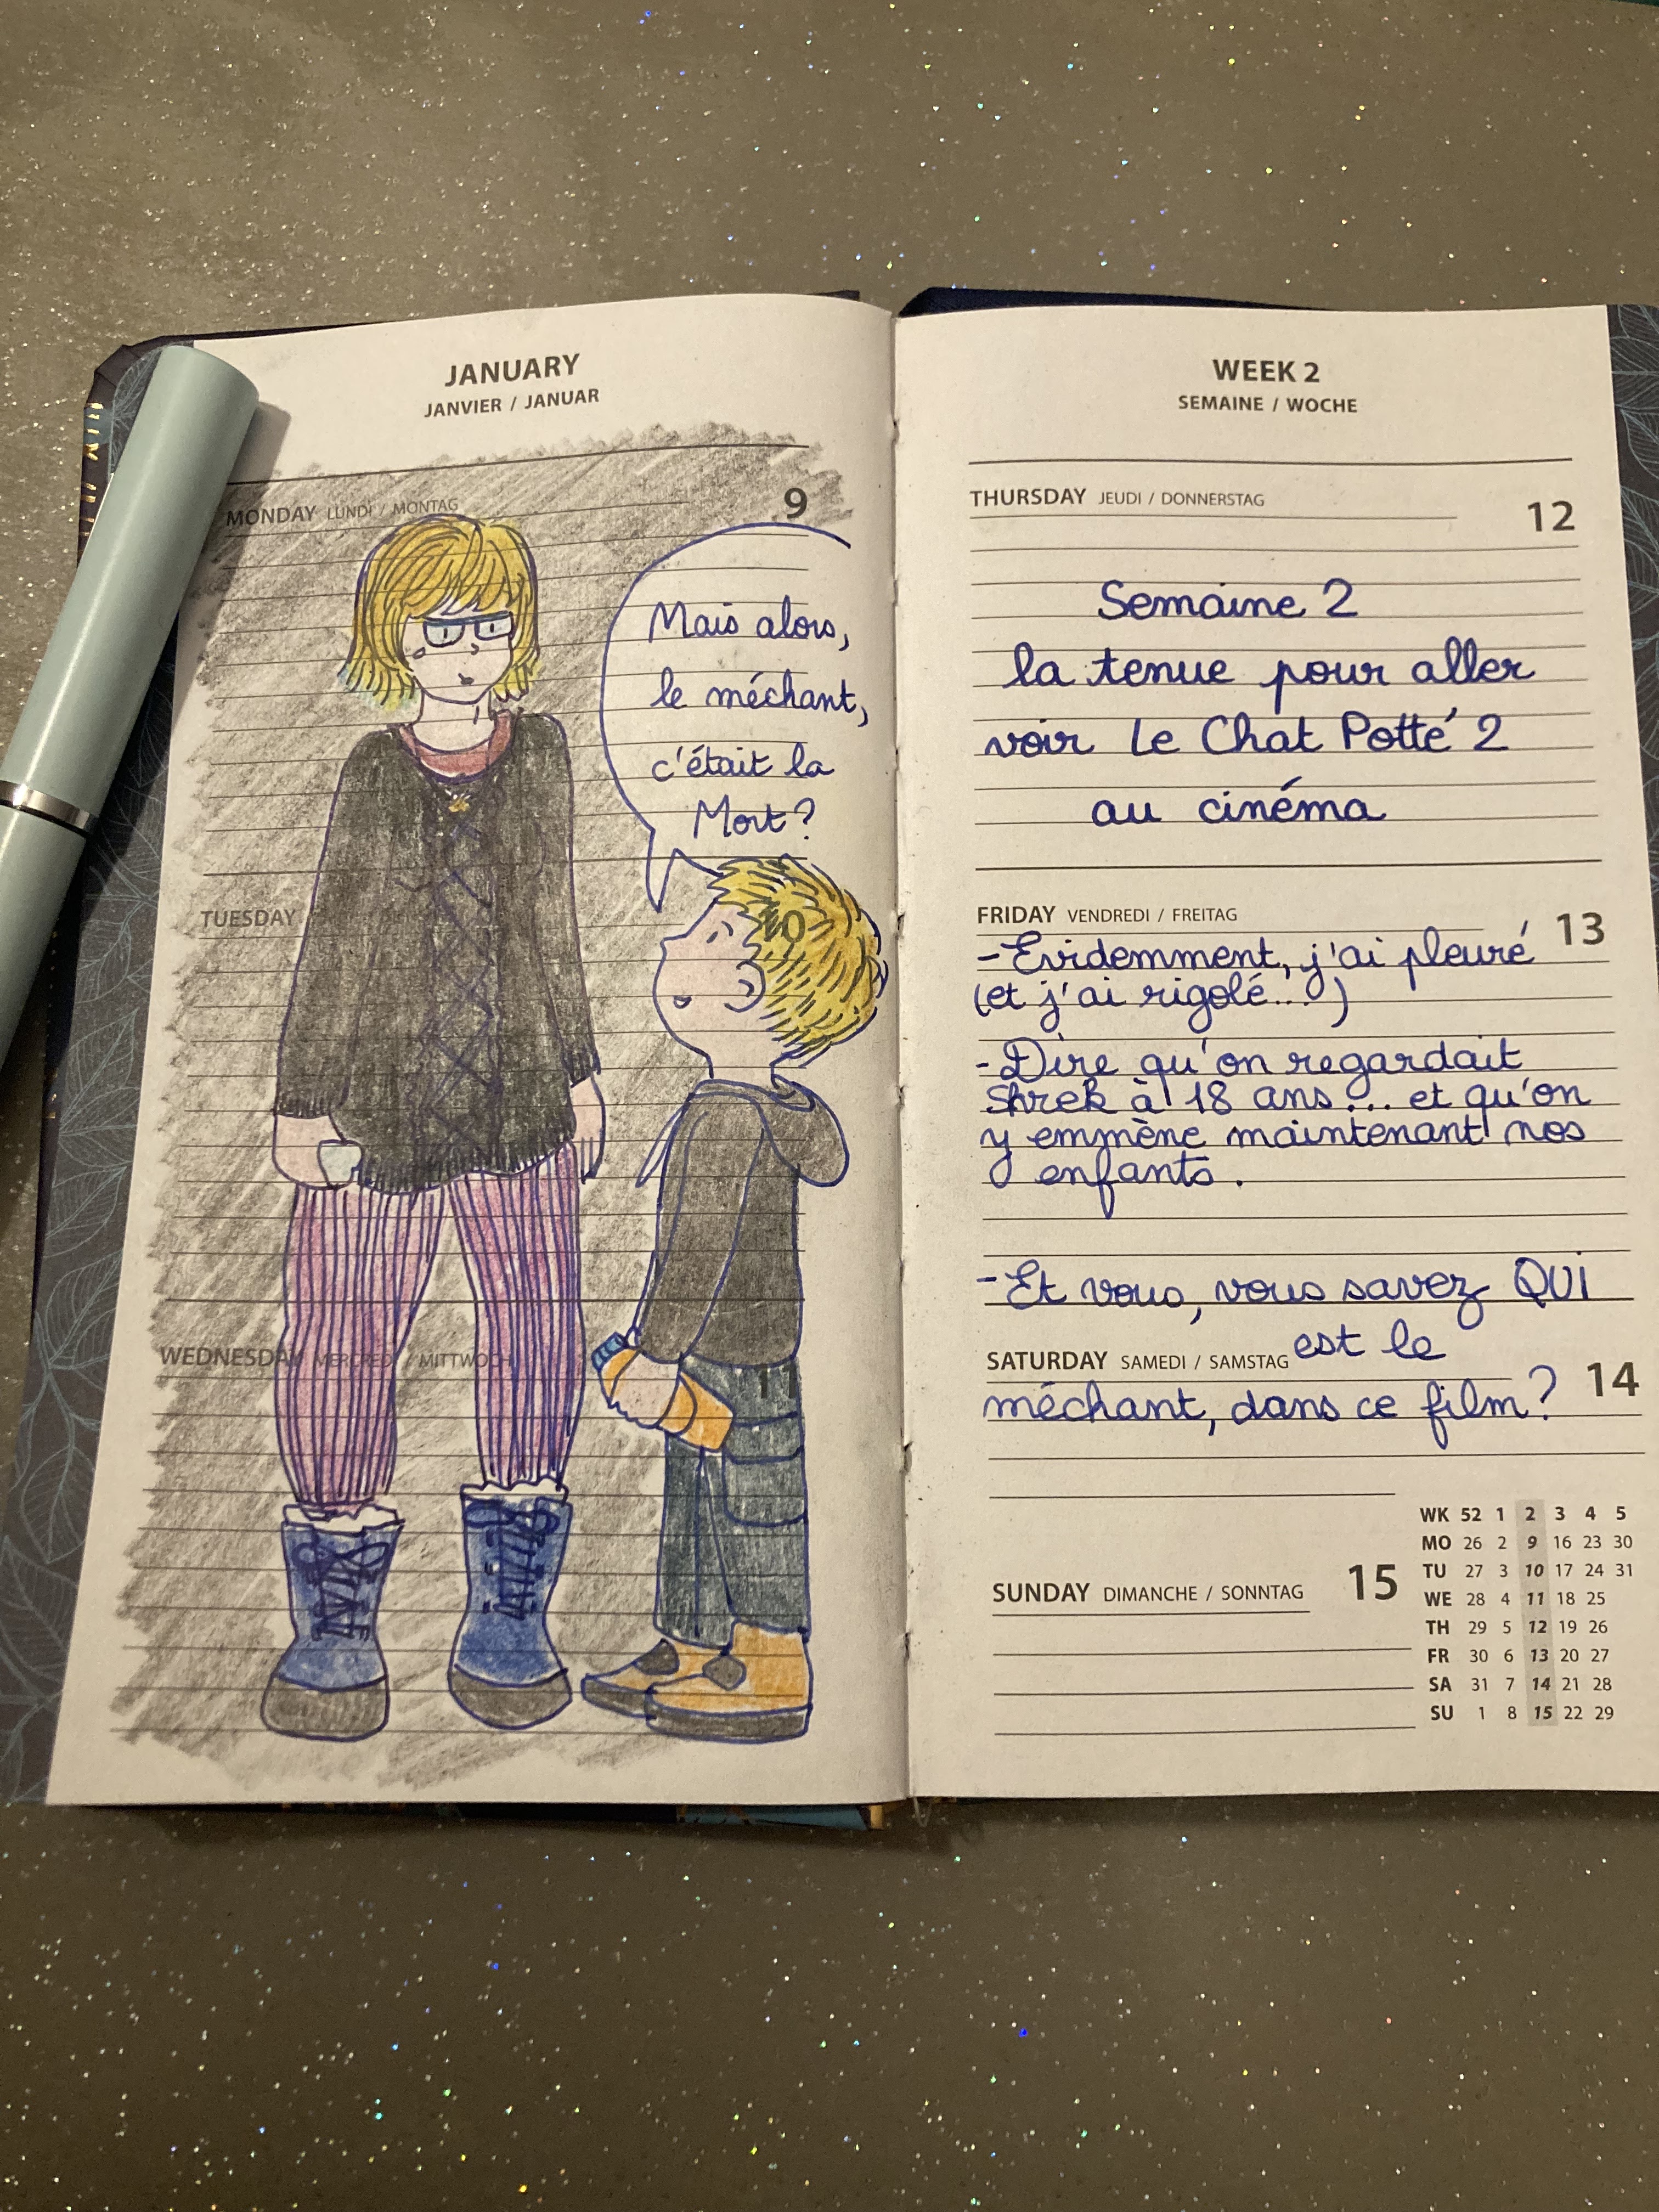 JANUARY
JANVIER / JANUAR
MONDAY LUNDI / MONTAG 9
Mais alors,
le méchant,
c'était la
Mort?
TUESDAY 10
WEDNESDAY MERCREDI / MITTWOCH 11
WEEK 2
SEMAINE / WOCHE
THURSDAY JEUDI / DONNERSTAG 12
Semaine 2
la tenue pour aller
voir Le Chat Potté 2
au cinéma
FRIDAY VENDREDI / FREITAG 13
- Evidemment, j'ai pleuré
(et j'ai rigolé...)
- Dire qu'on regardait
Shrek à 18 ans... et qu'on
y emmène maintenant nos
enfants.
- Et vous, vous savez QUI
est le
SATURDAY SAMEDI / SAMSTAG 14
méchant, dans ce film?
SUNDAY DIMANCHE / SONNTAG 15
WK 52 1 2 3 4 5
MO 26 2 9 16 23 30
TU 27 3 10 17 24 31
WE 28 4 11 18 25
TH 29 5 12 19 26
FR 30 6 13 20 27
SA 31 7 14 21 28
SU 1 8 15 22 29